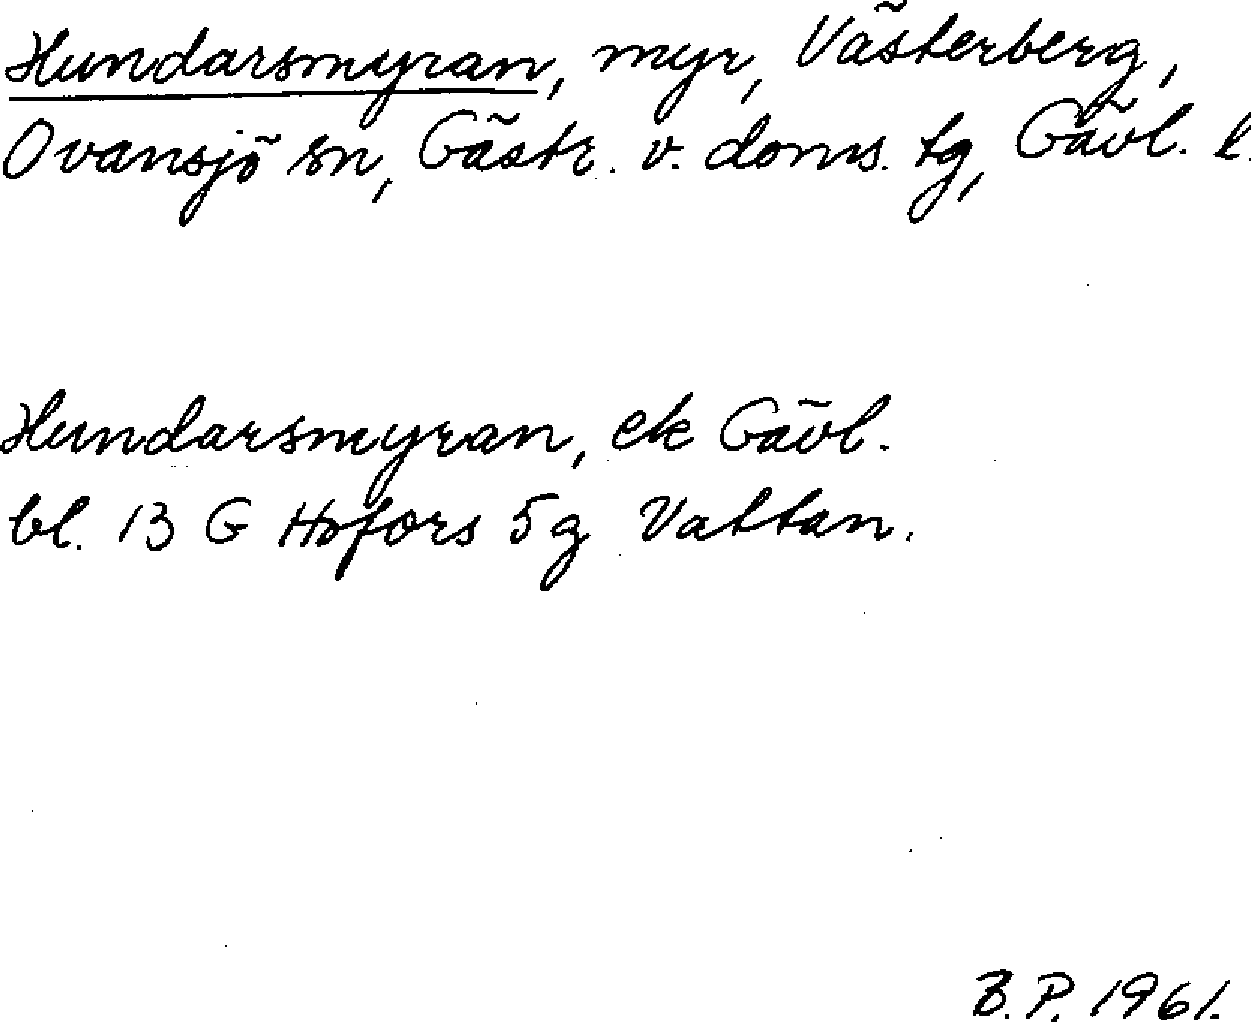 Hundarsmyran, myr, Västerberg,
Ovansjö sn, Gästr. v. doms. tg, Gävl. l.
Hundarsmyran, ek Gävl.
bl. 13 G Hofors 5g Vattan.
B.P. 1961.